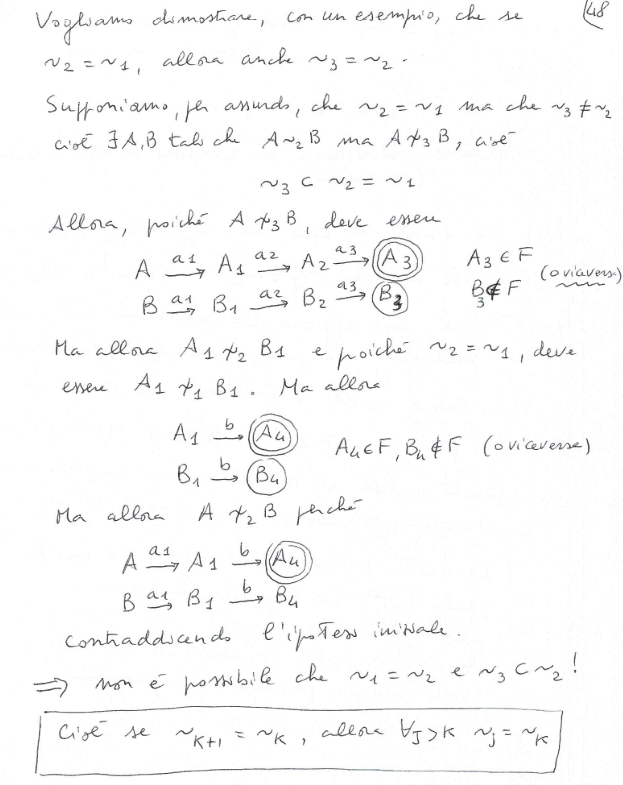 Vogliamo dimostrare, con un esempio, che se
48
~₂ = ~₁, allora anche ~₃ = ~₂.
Supponiamo, per assurdo, che ~₂ = ~₁ ma che ~₃ ≠ ~₂
cioè ∃A,B tali che A ~₂ B ma A ≁₃ B, cioè
~₃ ⊂ ~₂ = ~₁
Allora, poiché A ≁₃ B, deve essere
A →a1 A₁ →a2 A₂ →a3 A₃ A₃ ∈ F
(o viceversa)
B →a1 B₁ →a2 B₂ →a3 B₃ B₃ ∉ F
Ma allora A₁ ≁₂ B₁ e poiché ~₂ = ~₁, deve
essere A₁ ≁₁ B₁. Ma allora
A₁ →b A₄ A₄ ∈ F, B₄ ∉ F (o viceversa)
B₁ →b B₄
Ma allora A ≁₂ B perché
A →a1 A₁ →b A₄
B →a1 B₁ →b B₄
contraddicendo l'ipotesi iniziale.
⇒ non è possibile che ~₁ = ~₂ e ~₃ ⊂ ~₂!
Cioè se ~K+1 = ~K, allora ∀J>K ~J = ~K